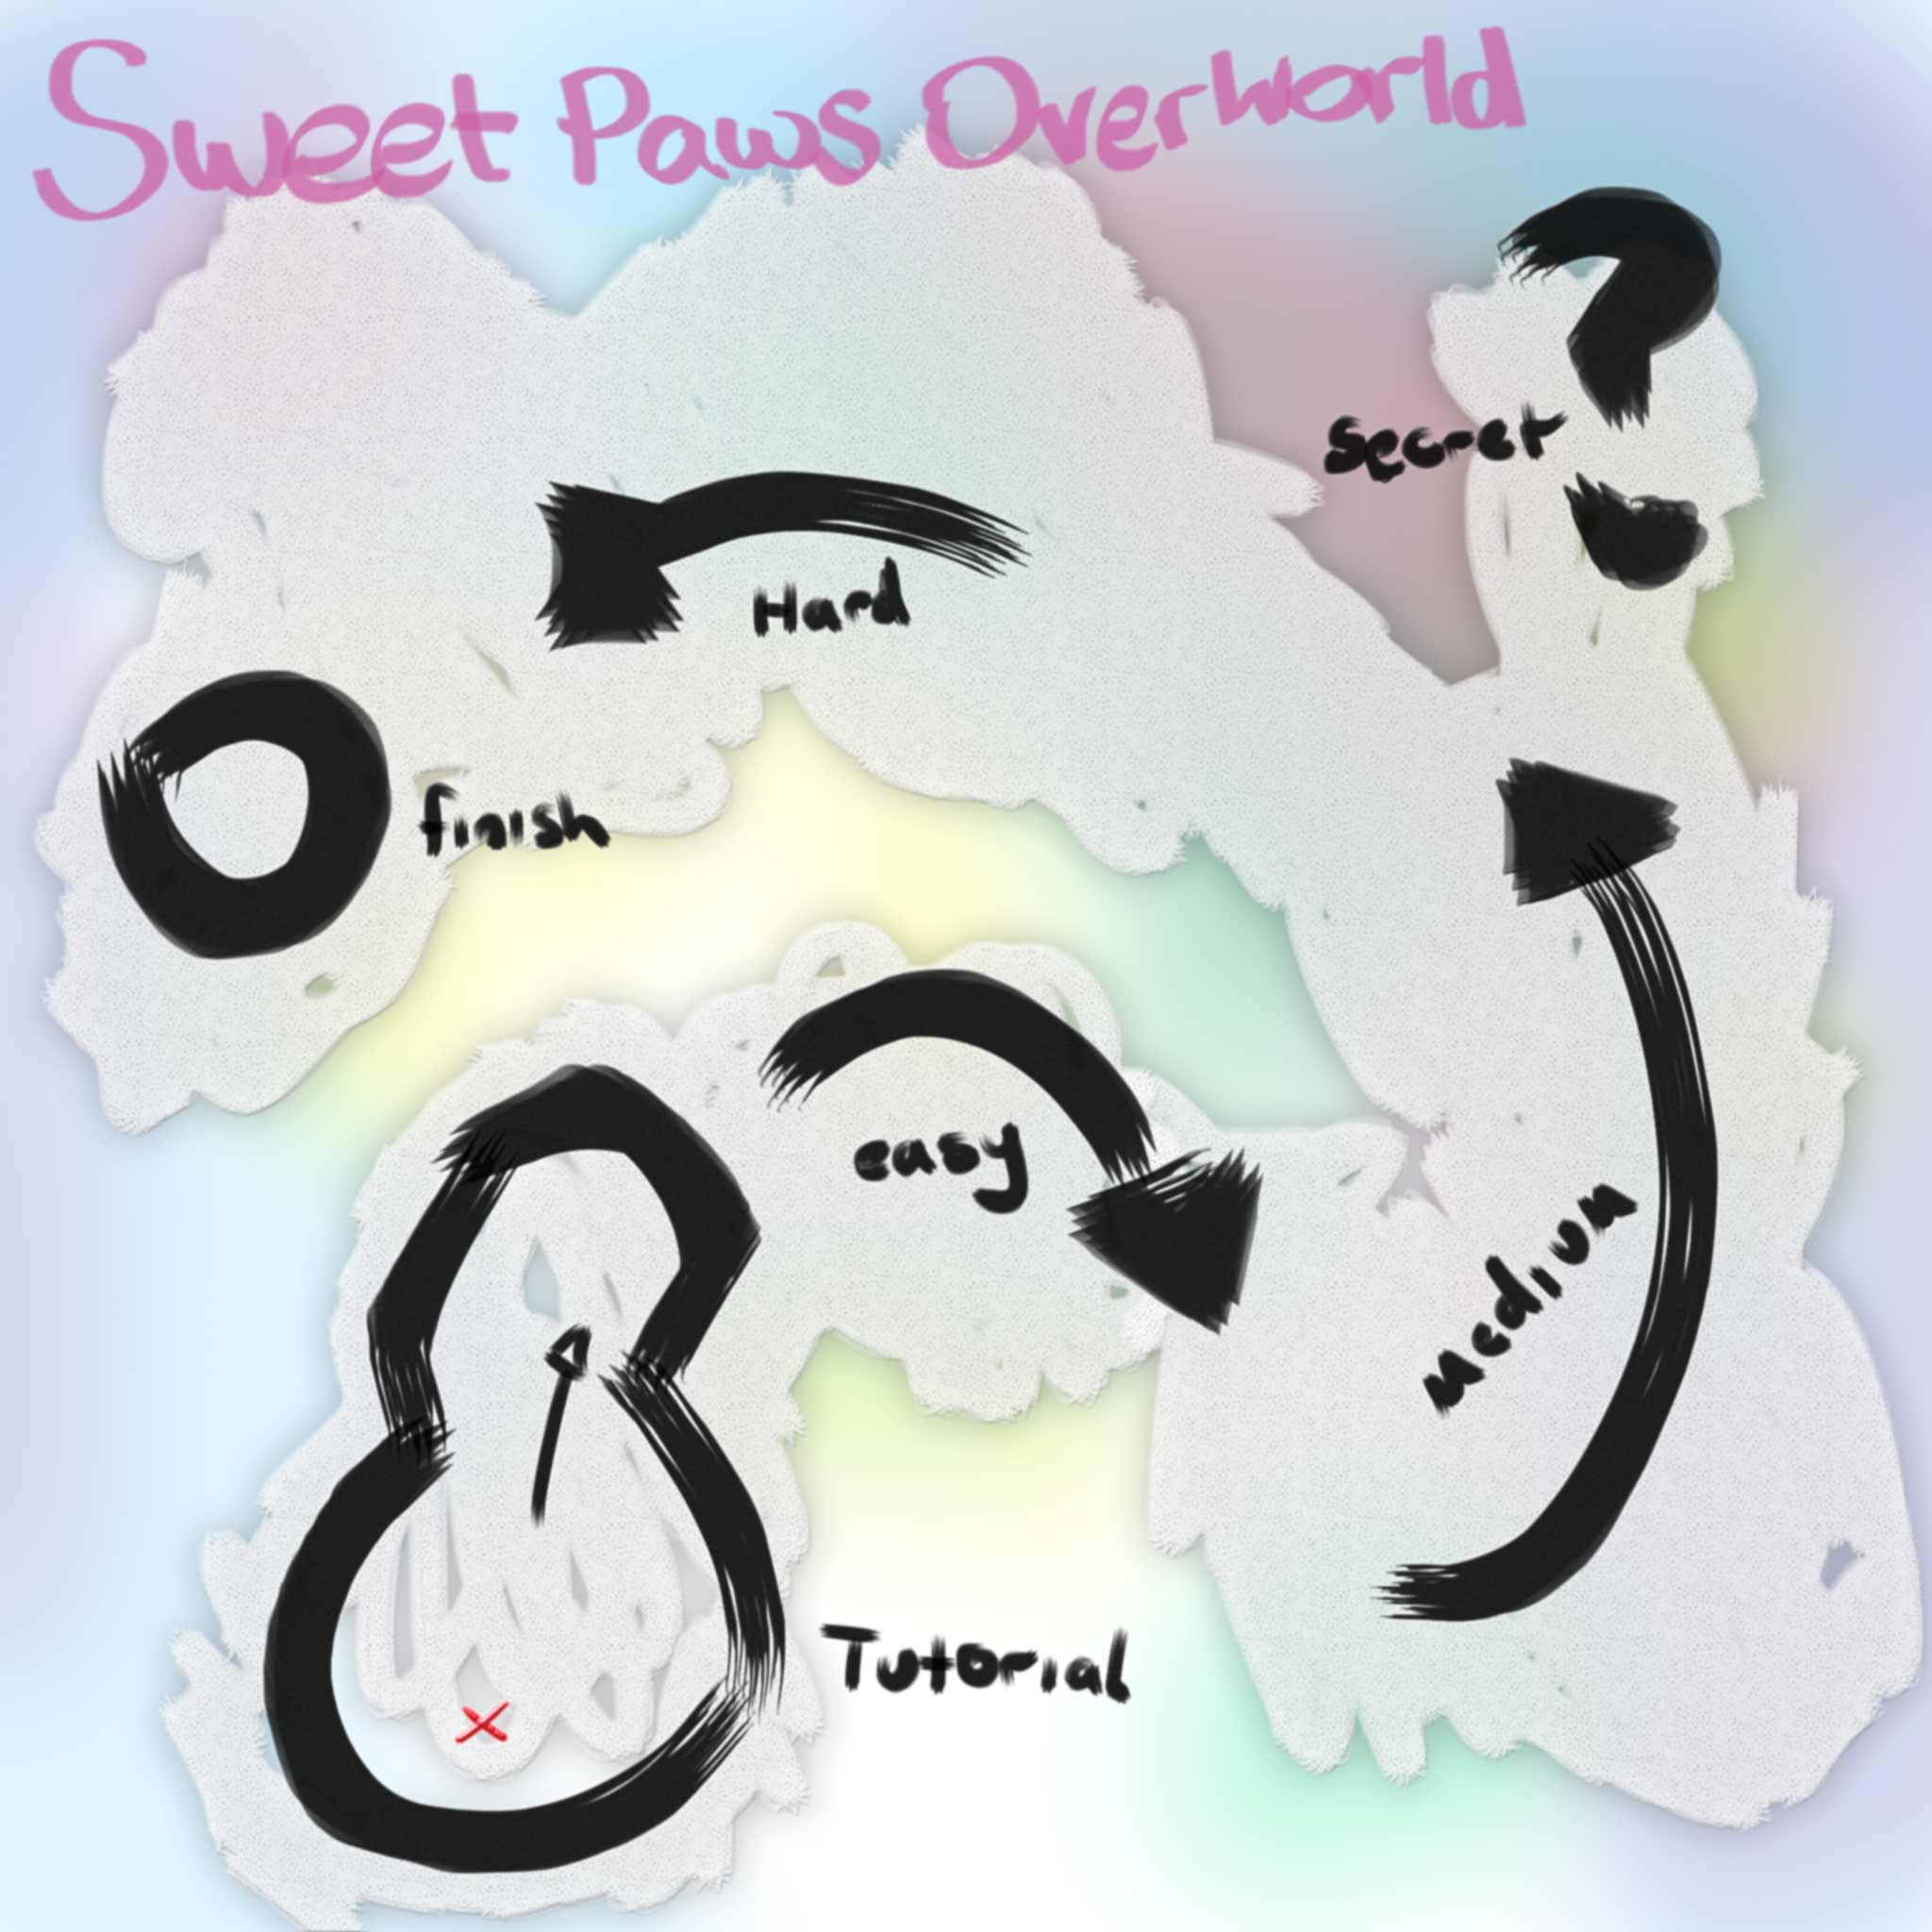 Sweet Paws Overworld
secret
Hard
finish
easy
Medium
Tutorial